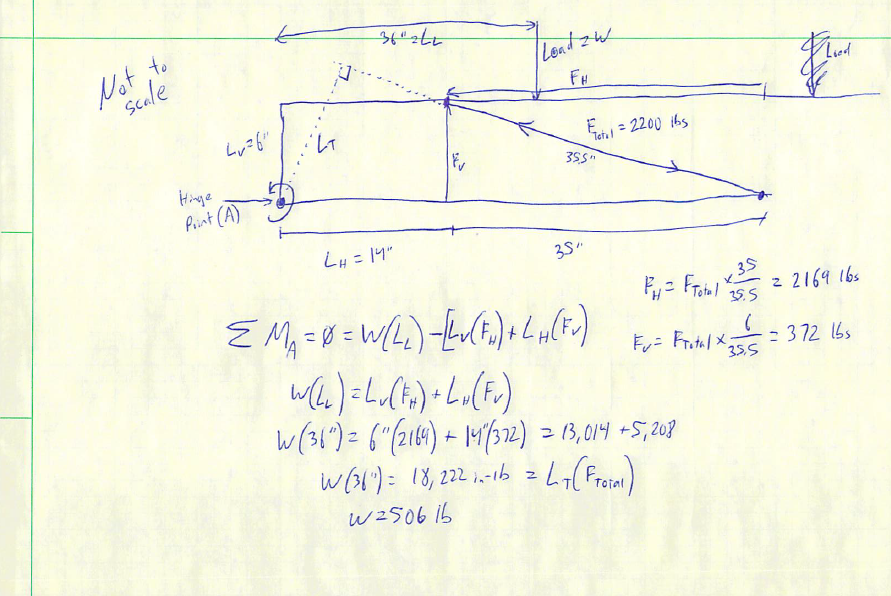 36" = L_L
Load = W
Load
Not to
scale
F_H
L_V = 6"
L_T
F_Total = 2200 lbs
35.5"
F_V
Hinge
Point (A)
L_H = 14"
35"
F_H = F_Total × 35/35.5 = 2169 lbs
F_V = F_Total × 6/35.5 = 372 lbs
Σ M_A = Ø = W(L_L) - [L_V(F_H) + L_H(F_V)
W(L_L) = L_V(F_H) + L_H(F_V)
W(36") = 6"(2169) + 14"(372) = 13,014 + 5,208
W(36") = 18,222 in-lb = L_T(F_Total)
W = 506 lb